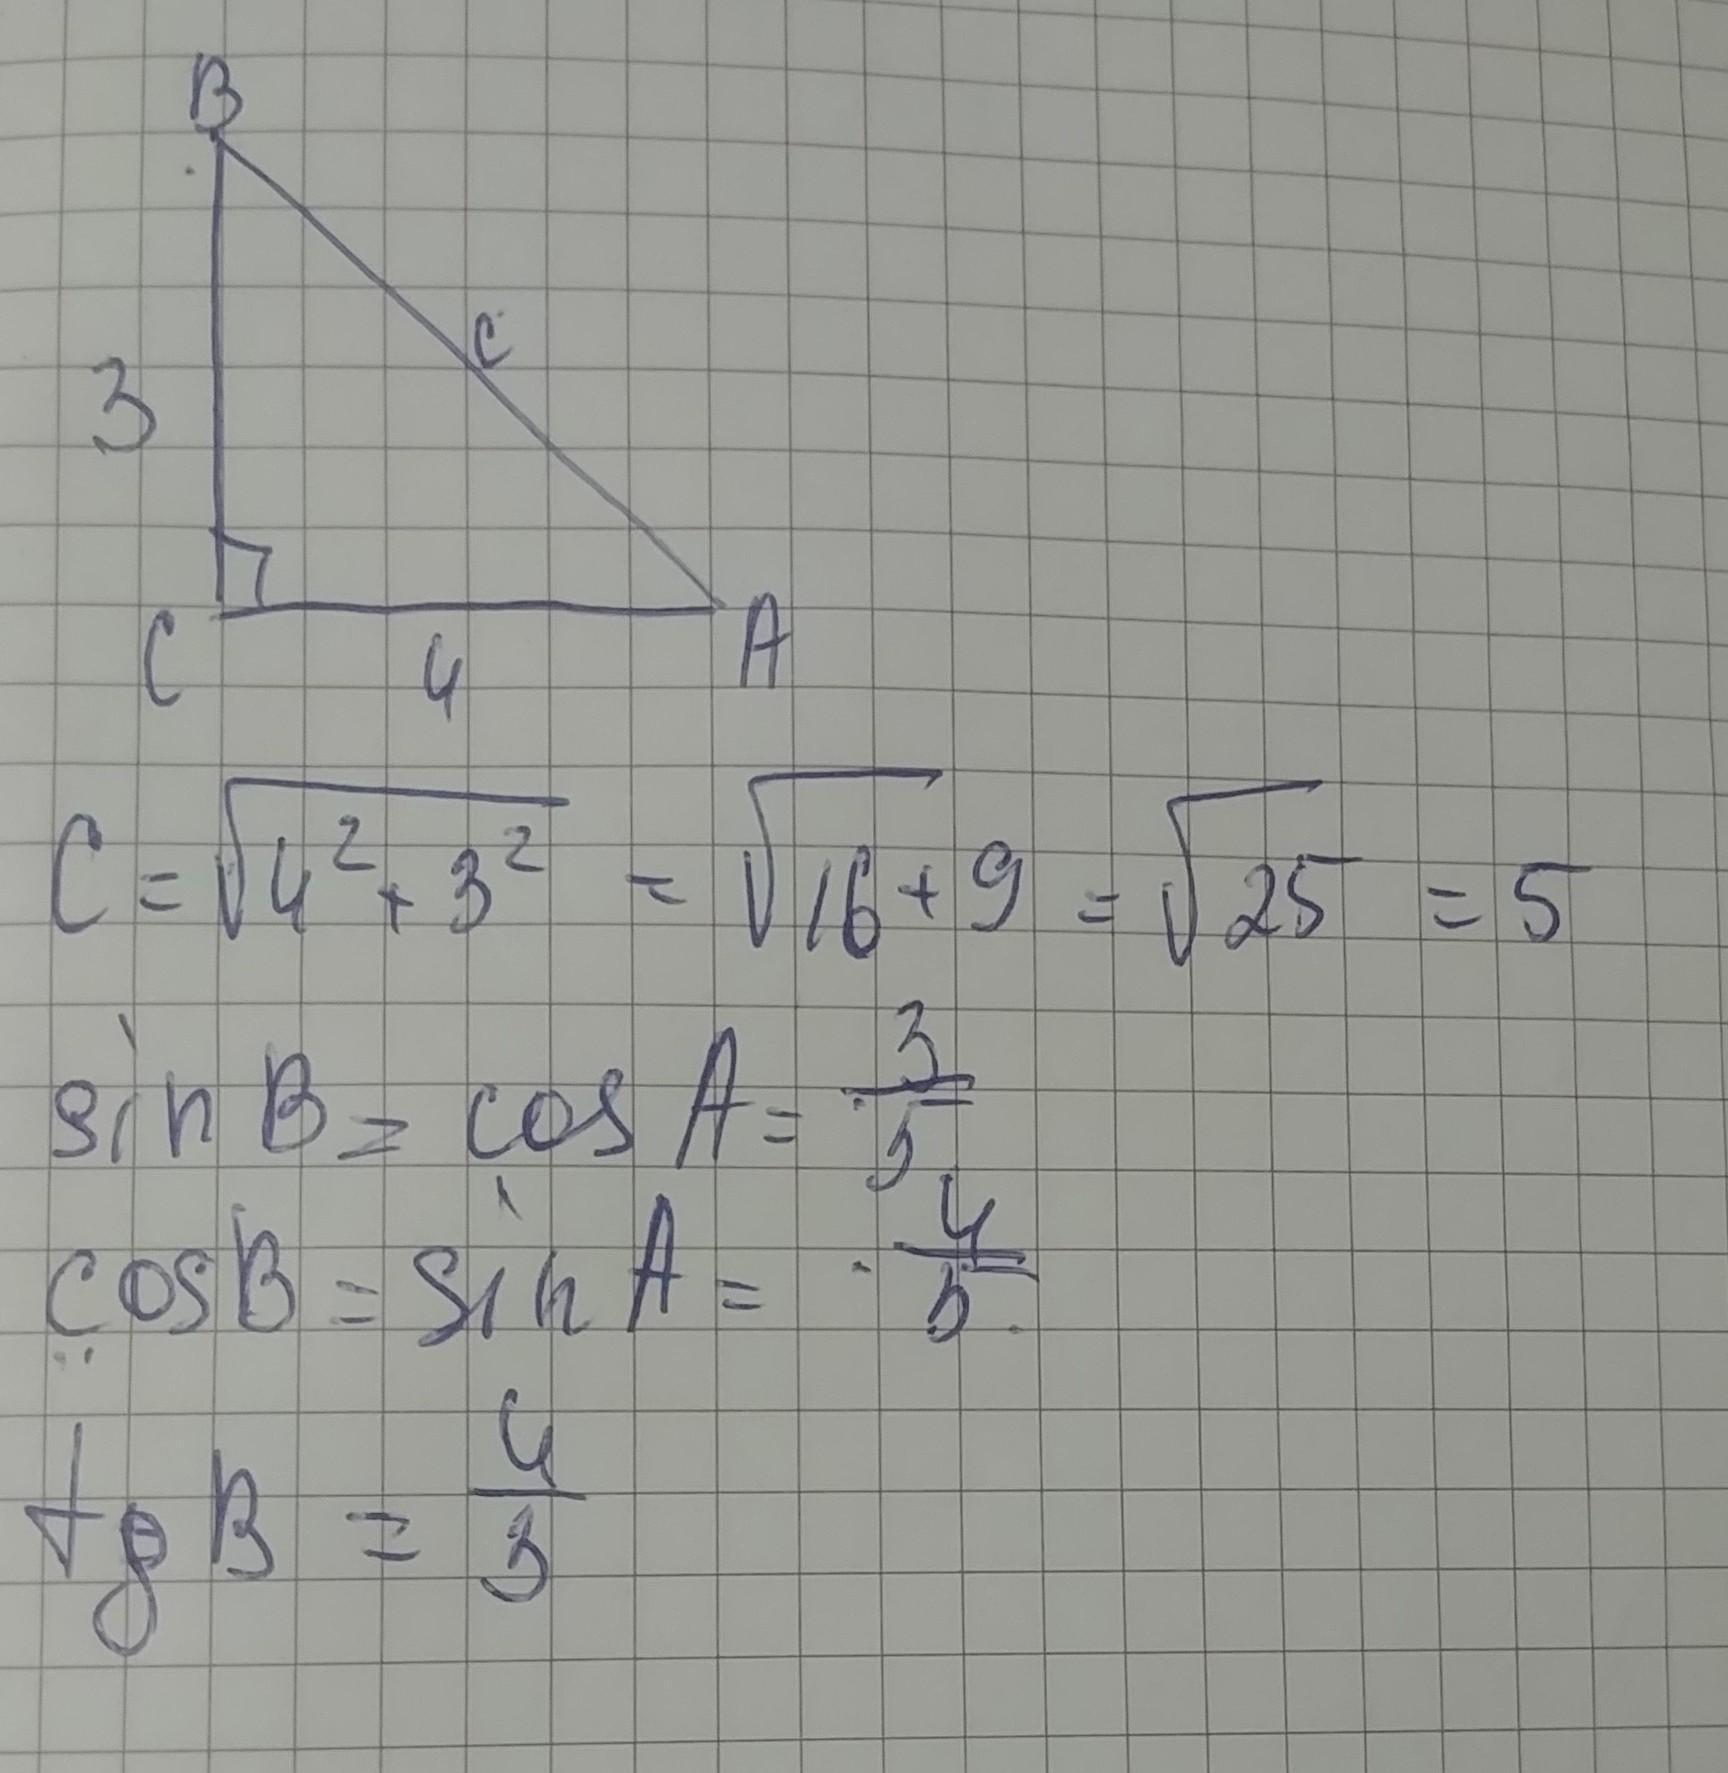 B
c
3
C
4
A
C = √4² + 3² = √16 + 9 = √25 = 5
sin B = cos A = 3/5
cos B = sin A = 4/5
tg B = 4/3